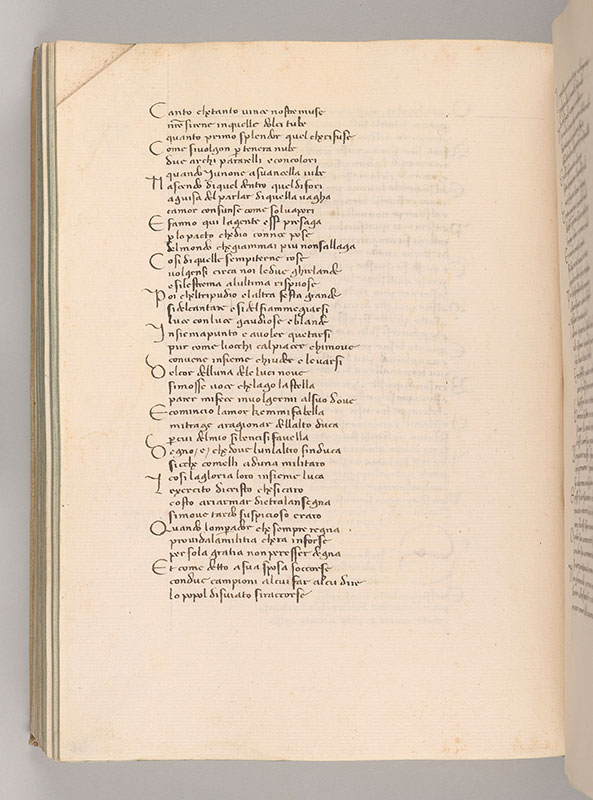 Canto che tanto vince nostre muse
nrẽ sirene in quelle dolci tube
quanto primo splendor quel che rifuse
Come si volgon p tenera nube
due archi pararelli e concolori
quando Junone a sua ancella iube
Nascendo di quel dentro quel di fori
a guisa del parlar di quella vagha
camor consunse come sol vapori
E fanno qui la gente esser presaga
p lo pacto che dio con noe pose
del mondo che giammai piu non sallaga
Cosi di quelle sempiterne rose
volgensi circa noi le due ghirlande
e si lestrema al ultima rispuose
Poi cheltripudio el altra festa grande
si del cantare e si del fiammeguarsi
luce con luce gaudiose e blande
Insieme a punto e a voler quetarsi
pur come li occhi cal piacer che i move
convene insieme chiudere e levarsi
Del cor dell una de le luci nove
si mosse voce che lago la stella
parer mi fece in volgermi al suo dove
E comincio lamor che mmi fa bella
mi trage a ragionar dell alto duca
p cui del mio si ben ci si favella
Degno e che dove lun laltro sinduca
si che comelli ad una militaro
cosi la gloria loro insieme luca
Lexercito di cristo che si caro
costo a riarmar dietra lansegna
si move tardo suspicioso e raro
Quando lomperador che sempre regna
provide a la militia chera in forse
per sola gratia non per esser degna
Et come detto a sua sposa soccorse
con due campioni al cui far al cui dire
lo popol disviato si raccorse